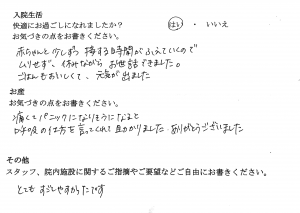 入院生活
快適にお過ごしになれましたか？　はい ・ いいえ
お気づきの点をお書きください。
赤ちゃんと少しずつ接する時間がふえていくので
ムリせず、休みながらお世話できました。
ごはんもおいしくて、元気が出ました
お産
お気づきの点をお書きください。
痛くてパニックになりそうになると
呼吸の仕方を言ってくれて助かりました ありがとうございました
その他
スタッフ、院内施設に関するご指摘やご要望などご自由にお書きください。
とても すごしやすかったです